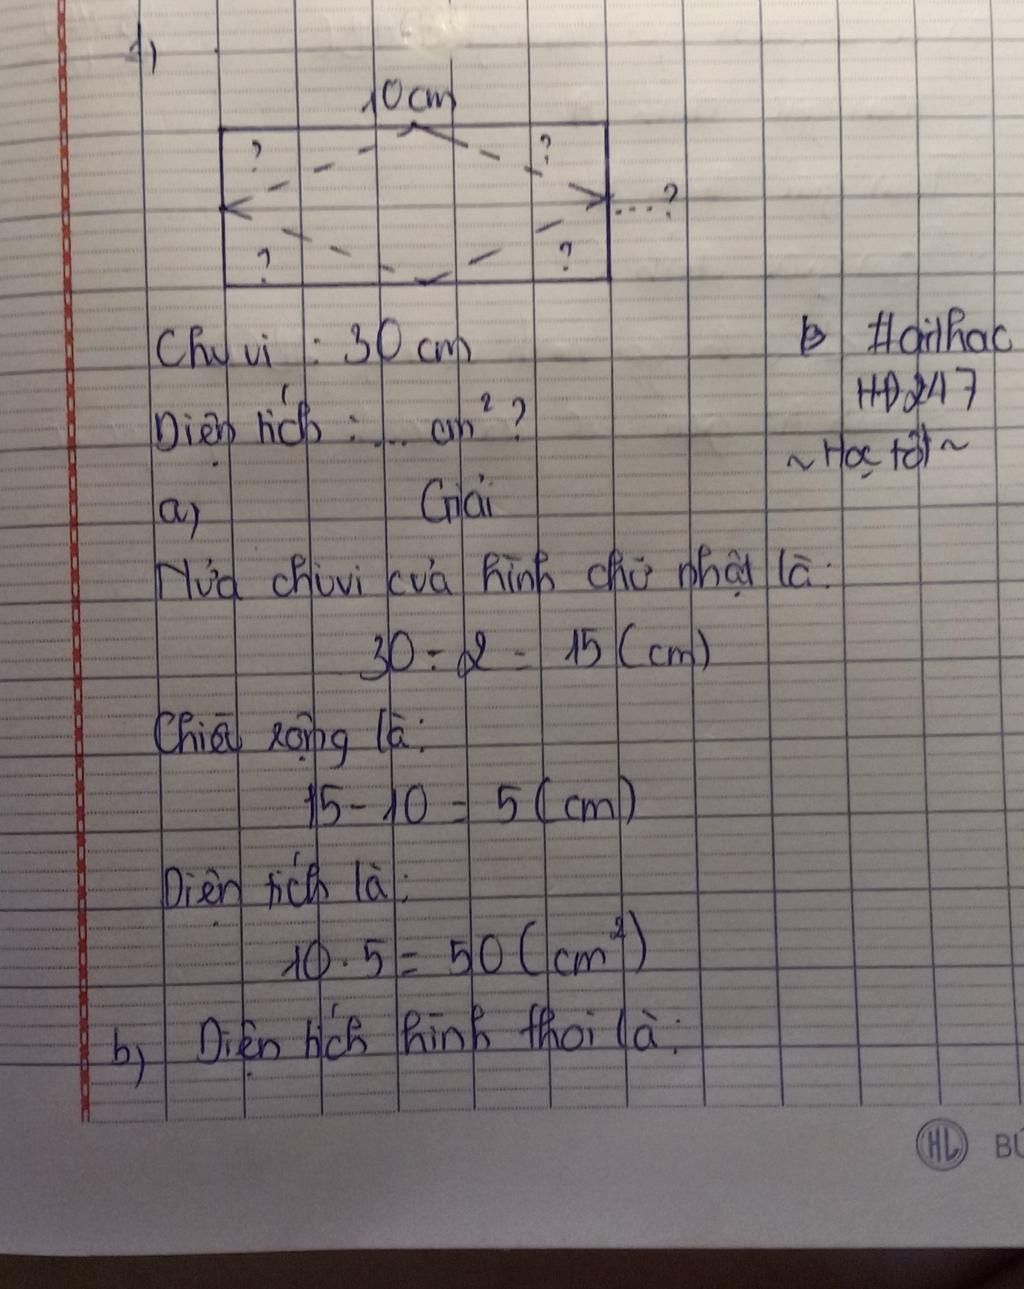 1)
10 cm
? ?
....?
? ?
Chu vi : 30 cm
Diện tích : .... cm² ?
Hoinhac
HĐ247
~ Học tốt ~
a) Giải
Nửa chu vi của hình chữ nhật là:
30 : 2 = 15 (cm)
Chiều rộng là:
15 - 10 = 5 (cm)
Diện tích là:
10 . 5 = 50 (cm²)
b) Diện tích hình thoi là:
HL